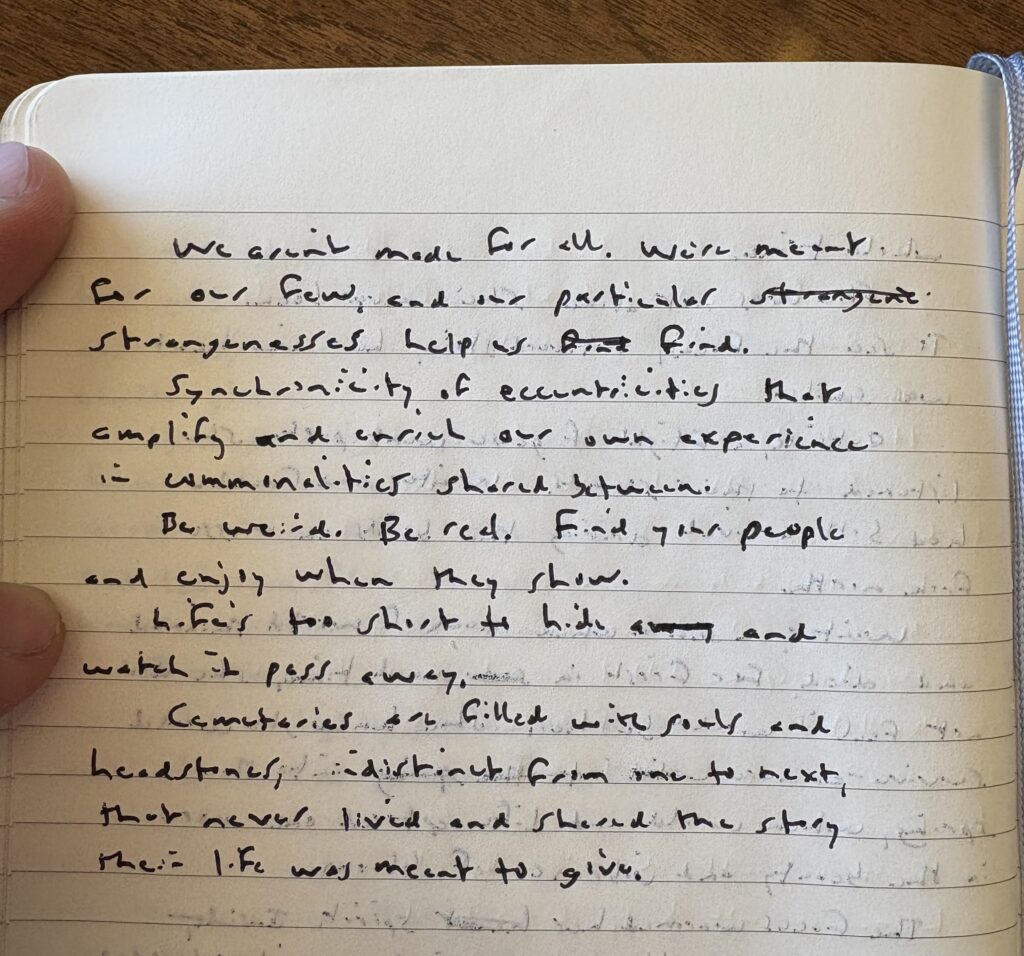 We aren't made for all. We're meant
for our few, and our particular strangene
strangenesses help us find find.
Synchronicity of eccentricities that
amplify and enrich our own experience
in commonalities shared between.
Be weird. Be real. Find your people
and enjoy when they show.
Life's too short to hide away and
watch it pass away.
Cemeteries are filled with souls and
headstones, indistinct from one to next,
that never lived and shared the story
their life was meant to give.